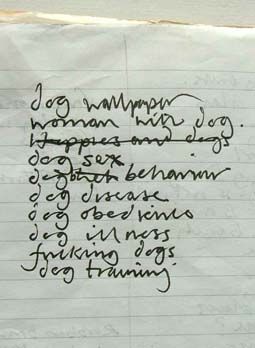 dog wallpaper
woman with dog.
and dogs
dog sex
dog behaviour
dog disease
dog
dog illness
fucking dogs
dog training